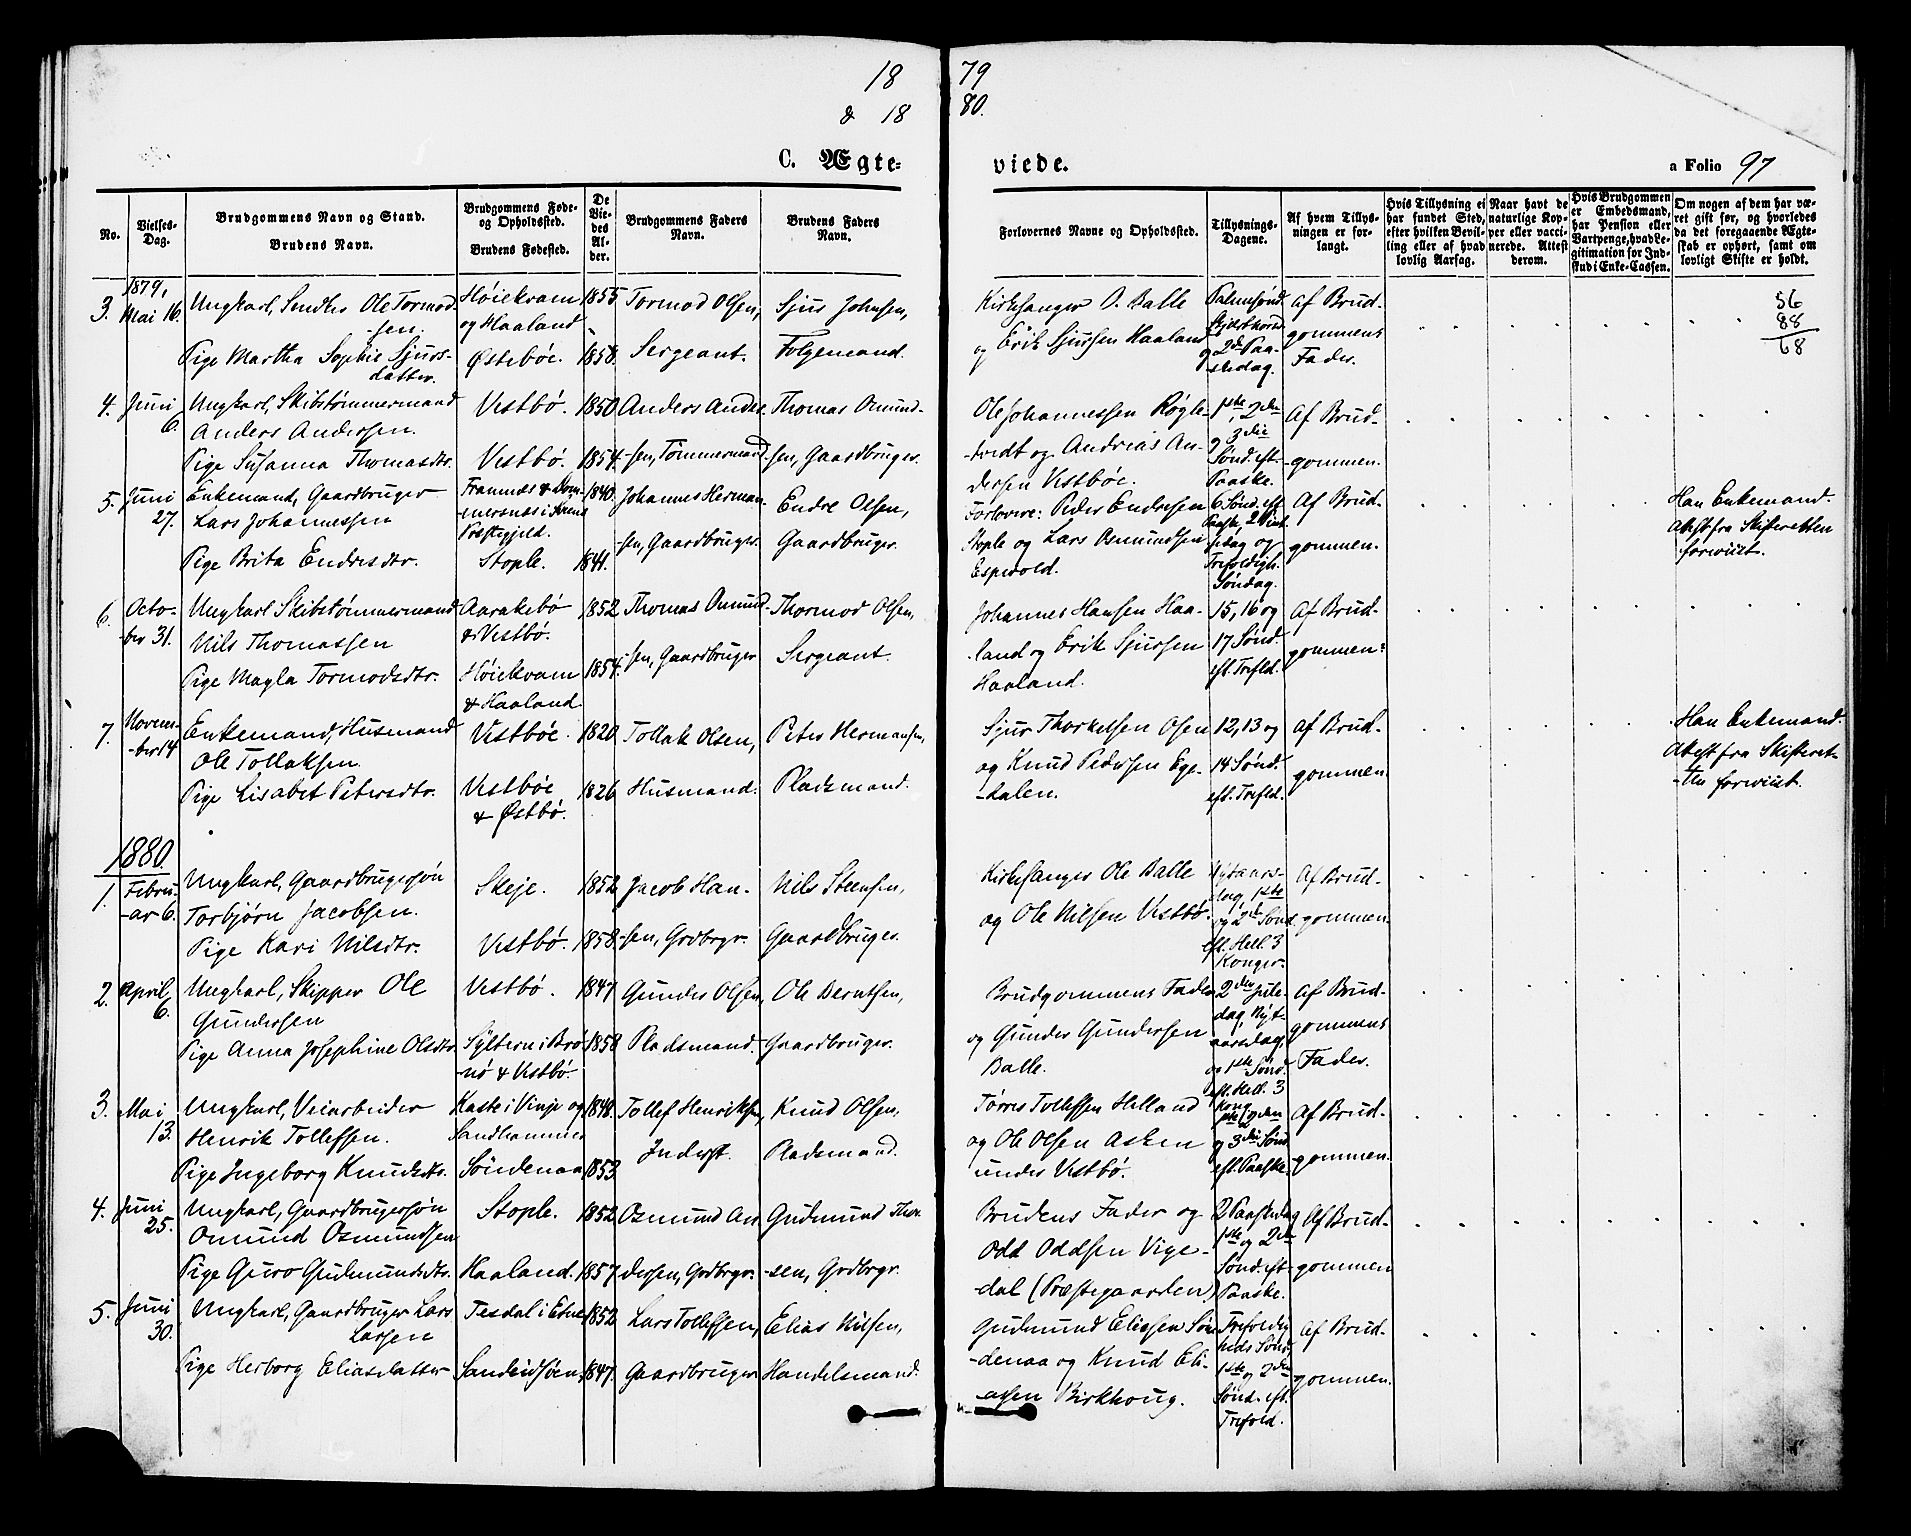 18 79
& 18 80.
C. Ægte- viede. a Folio 97
No.
Vielses-Dag.
Brudgommens Navn og Stand.
Brudens Navn.
Brudgommens Føde- og Opholdssted.
Brudens Fødested.
De Viedes Alder.
Brudgommens Faders Navn.
Brudens Faders Navn.
Forlovernes Navne og Opholdssted.
Tillysnings-Dagene.
Af hvem Tillysningen er forlangt.
Hvis Tillysning ei har fundet Sted, efter hvilken Bevilling eller af hvad lovlig Aarsag.
Naar havt de naturlige Kopper eller vaccinerede. Attest derom.
Hvis Brudgommen er Embedsmand, har Pension eller Vartpenge, hvad Legitimation for Indskud i Enke-Cassen.
Om nogen af dem har været gift før, og hvorledes da det foregaaende Ægteskab er ophørt, samt om lovligt Skifte er holdt.
1879,
3. Mai 16.
Ungkarl, Snedker Ole Tormod-
-sen.
Pige Martha Sophie Sjurs-
datter.
Høiekvam
og Haaland
Østebøe.
1855
1858.
Tormod Olsen,
Sergeant.
Sjur Johnsen,
Følgemand.
Kirkesanger O. Balle
og Erik Sjursen Haaland
Palmesønd.
Skjærthorsd.
og 2den Paa-
skedag.
Af Brud-
gommens
Fader.
56
88
68
4. Juni
6.
Ungkarl, Skibstømmermand
Anders Andersen.
Pige Susanna Thomasdtr.
Vestbø.
Vestbø.
1850.
1854.
Anders Ander-
-sen, Tømmermand.
Thomas Omund-
sen, Gaardbruger.
Ole Johannessen Røgle-
-tvedt og Andreas An-
dersen Vestbøe.
1ste, 2den
og 3die
Sønd. eft.
Paaske.
Af Brud-
gommen.
5. Juni
27.
Enkemand, Gaardbruger
Lars Johannessen
Pige Brita Endresdtr.
Præstegjeld.
Stople.
1840.
1841.
Johannes Herman-
-sen, Gaardbruger.
Endre Olsen,
Gaardbruger.
Forlovere: Peder Endresen
Stople og Lars Osmundsen
Espevold.
6 Sønd. eft.
Paaske, 2 Pint-
sedag og
Trefoldigh.
Søndag.
Af Brud-
gommen.
Han Enkemand.
Attest fra Skifteretten
foreviist.
6. Octo-
-ber 31.
Ungkarl Skibstømmermand
Nils Thomassen
Pige Magla Tormodsdtr.
Aarakebø
& Vestbø.
Høiekvam
& Haaland.
1852.
1854.
Thomas Omund-
-sen, Gaardbruger
Thormod Olsen,
Sergeant.
Johannes Hansen Haa-
-land og Erik Sjursen
Haaland.
15, 16 og
17 Sønd.
eft. Trefld.
Af Brud-
gommen.
7. Novem-
-ber 14.
Enkemand, Husmand
Ole Tollaksen.
Pige Lisabet Petersdtr.
Vestbøe.
Vestbøe
& Østbø.
1820.
1826
Tollak Olsen,
Husmand.
Peter Hermansen,
Pladsmand.
Sjur Thorkelsen Olsen
og Knud Pedersen Ege-
-dalen.
12, 13 og
14 Sønd.
eft. Trefld.
Af Brud-
gommen.
Han Enkemand.
Attest fra Skifteret-
-ten foreviist.
1880.
1. Febru-
-ar 6.
Ungkarl, Gaardbrugersøn
Torbjørn Jacobsen.
Pige Kari Nilsdtr.
Skeje.
Vestbø.
1852.
1858.
Jacob Han-
-sen, Grdbrgr.
Nils Steensen,
Gaardbruger.
Kirkesanger Ole Balle
og Ole Nilsen Vestbø.
Nytaars-
dag, 1ste
og 2den Sønd.
eft. Hell. 3
Konger.
Af Brud-
gommen.
2. April
6.
Ungkarl, Skipper Ole
Gundersen
Pige Anna Josephine Olsdtr.
Vestbø.
Syltern i Brø-
nø & Vestbø.
1847
1858
Gunder Olsen,
Pladsmand.
Ole Berntsen,
Gaardbruger.
Brudgommens Fader
og Gunder Gundersen
Balle.
2den Jule-
dag, Nyt-
aarsdag,
og 1ste Sønd.
eft. Hell. 3
Kong.
Af Brud-
gommens
Fader.
3. Mai
13.
Ungkarl, Veiarbeider
Henrik Tollefsen.
Pige Ingeborg Knudsdtr.
Kaste i Vinje og
Sandhammer
Söndenaa
1848.
1853.
Tollef Henriksen,
Inderst.
Knud Olsen,
Pladsmand.
Tørres Tollefsen Helland
og Ole Olsen Asken
under Vestbø.
1ste, 2den
og 3die Sønd.
eft. Paaske.
Af Brud-
gommen.
4. Juni
25.
Ungkarl, Gaardbrugersøn
Omund Osmundsen
Pige Guro Gudmundsdtr.
Stople.
Haaland.
1852
1857
Osmund An-
dersen, Grdbrgr.
Gudmund Thor-
-sen, Grdbrgr.
Brudens Fader og
Odd Oddsen Vige-
dal (Præstegaarden)
2 Paaskedag
1ste og 2den
Sønd. eft.
Paaske.
Af Brud-
gommen
5. Juni
30.
Ungkarl, Gaardbruger Lars
Larsen
Pige Herborg Eliasdatter
Tesdal i Etne
Sandeidsøen.
1852.
1847.
Lars Tollefsen,
Gaardbruger
Elias Nilsen,
Handelsmand.
Gudmund Eliassen Søn-
-denaa og Knud Eli-
-assen Birkhoug.
Trefoldig-
heds Sønd.
1ste og 2den
Sønd. eft.
Trefold.
Af Brud-
gommen.